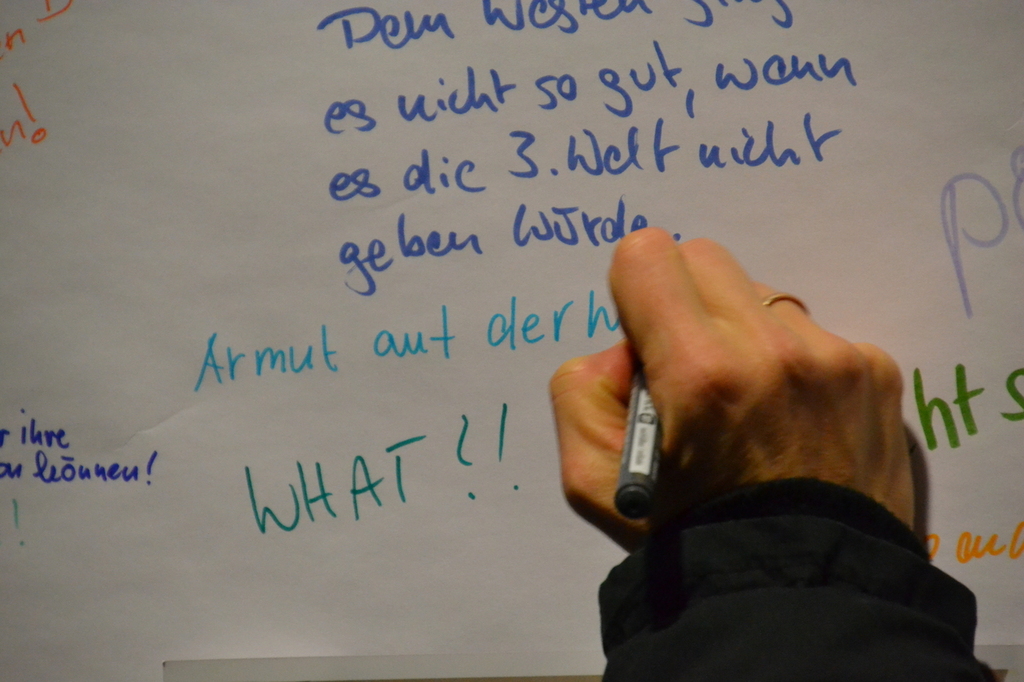 Dem Westen ging
es nicht so gut, wenn
es die 3. Welt nicht
geben würde.
Armut auf der W
WHAT?!
ihre
können!
!
ht s